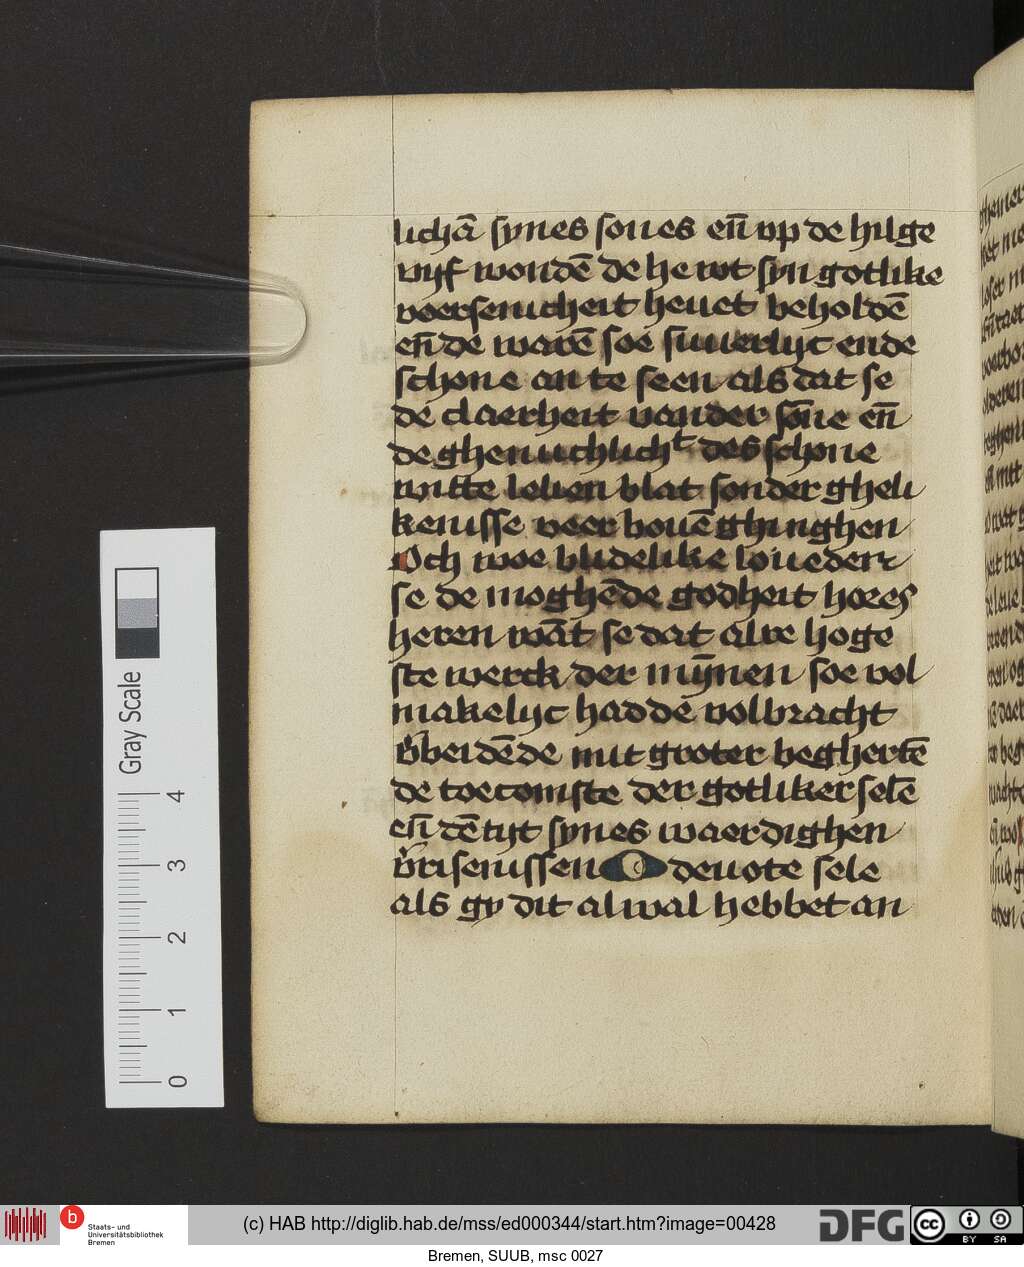 lichā synes sones eñ vp de hilge
vijf wondē de he wt syn gotlike
voersenicheit heuet beholdē
eñ de warē soe suuerlijc ende
schone an te seen als dat se
de claerheit vander sōne eñ
de ghenuchlicht des schone
witte lelien blat sonder gheli
kenisse veer bouē ghinghen
Och woe blidelike louedē
se de moghēde godheit hores
heren wāt se dat alre hoge
ste werck der mȳnen soe vol
makelijc hadde volbracht
v̄beidēde mit groter beghertē
de toecomste der gotliker selē
eñ dē tijt synes waerdighen
v̄risenissen O deuote sele
als gy dit al wal hebbet an
Gray Scale
4
3
2
1
0
b Staats- und
Universitätsbibliothek
Bremen
(c) HAB http://diglib.hab.de/mss/ed000344/start.htm?image=00428
DFG
cc BY SA
Bremen, SUUB, msc 0027